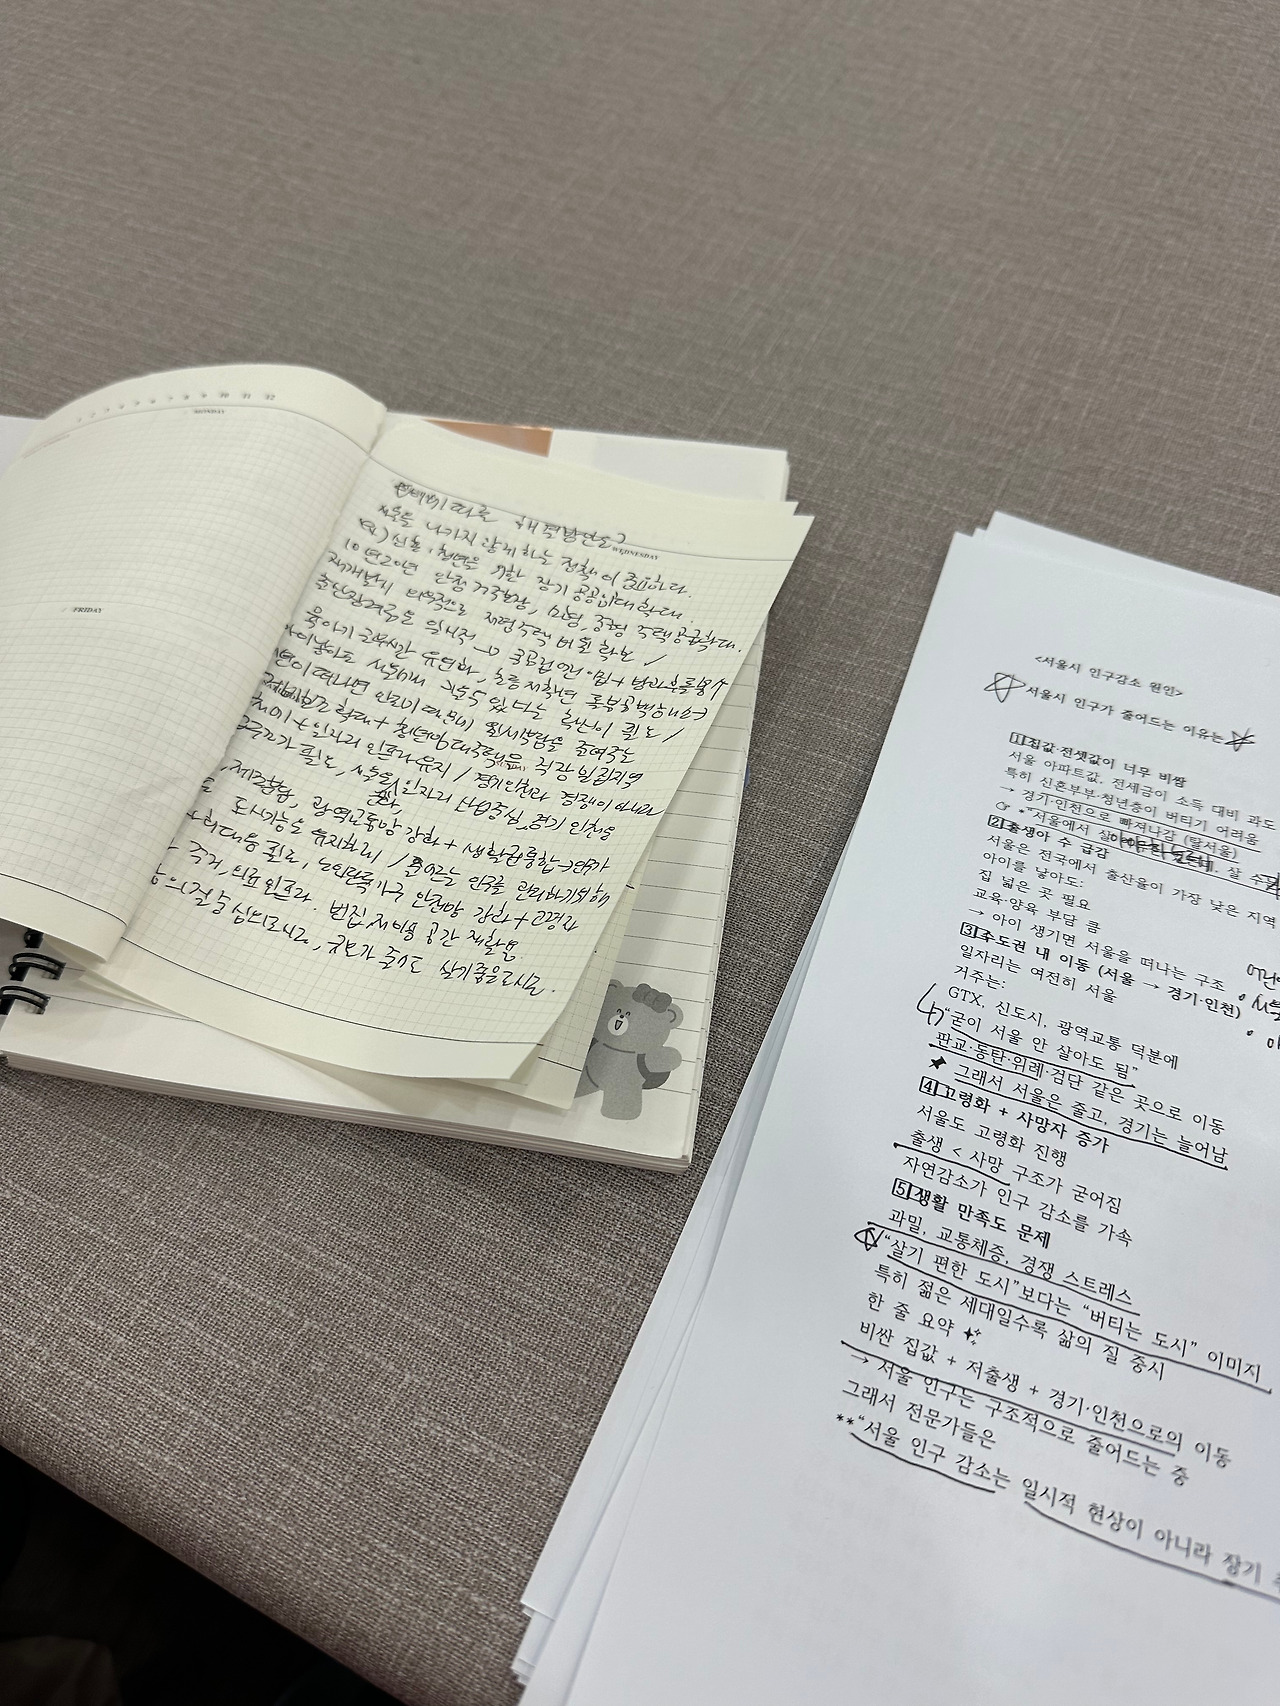 10 11 12
MONDAY
FRIDAY
해결방안은?
WEDNESDAY
서울을 나가지 않게 하는 정책이 중요하다.
신혼, 청년을 위한 장기 공공임대 확대.
10년 20년 안정 거주보장, 소형, 중형 주택공급확대.
재개발시 의무적으로 청년주택 비율 확보
출산장려금은 일시적 →
육아기 근무시간 유연화, 초등 저학년 돌봄공백해소→
아이낳아도 서울에서 키울수 있다는 확신이 필요
떠나면 안되기 때문에 월세부담을 줄여주는
확대 + 청년임대주택을 직장 밀집지역
일자리 인프라유지 / 경기인천과 경쟁이 아니라
필요, 서울은 일자리 산업중심, 경기 인천은
광역교통망 강화 + 생활권통합
도시기능은 유지하되 / 줄어드는 인구를 관리하기위해
필요, 노인단독가구 안전망 강화 + 고령자
주거, 의료 인프라. 빈집, 저비용 공간 재활용
의 질 중심의 도시로, 규모가 줄어도 살기좋은 도시로.
<서울시 인구감소 원인>
서울시 인구가 줄어드는 이유는
1 집값·전셋값이 너무 비쌈
서울 아파트값, 전세금이 소득 대비 과도
특히 신혼부부·청년층이 버티기 어려움
→ 경기·인천으로 빠져나감 (탈서울)
*"서울에서 살 수
2 출생아 수 급감
서울은 전국에서 출산율이 가장 낮은 지역
아이를 낳아도:
집 넓은 곳 필요
교육·양육 부담 큼
→ 아이 생기면 서울을 떠나는 구조
3 수도권 내 이동 (서울 → 경기·인천)
일자리는 여전히 서울
거주는:
GTX, 신도시, 광역교통 덕분에
"굳이 서울 안 살아도 됨"
판교·동탄·위례·검단 같은 곳으로 이동
그래서 서울은 줄고, 경기는 늘어남
4 고령화 + 사망자 증가
서울도 고령화 진행
출생 < 사망 구조가 굳어짐
자연감소가 인구 감소를 가속
5 생활 만족도 문제
과밀, 교통체증, 경쟁 스트레스
"살기 편한 도시"보다는 "버티는 도시" 이미지
특히 젊은 세대일수록 삶의 질 중시
한 줄 요약
비싼 집값 + 저출생 + 경기·인천으로의 이동
→ 서울 인구는 구조적으로 줄어드는 중
그래서 전문가들은
**"서울 인구 감소는 일시적 현상이 아니라 장기